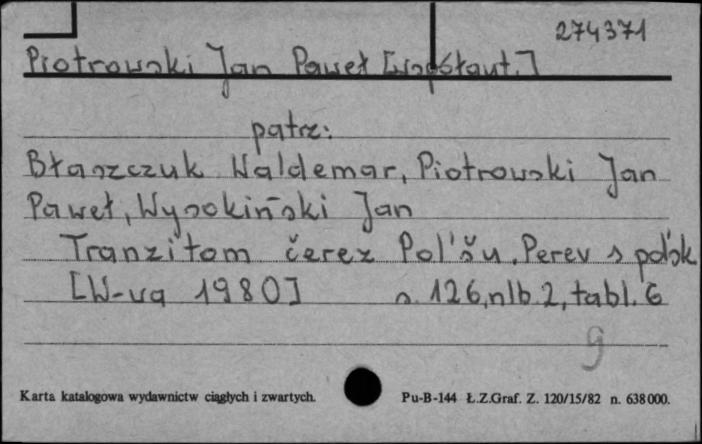 274371
Piotrowski Jan Paweł [współaut.]
patrz:
Błaszczuk Waldemar, Piotrowski Jan
Paweł, Wysokiński Jan
Tranzitom čerez Pol'šu. Perev s pol'sk
[W-wa 1980] s. 126, nlb 2, tabl. 6
g
Karta katalogowa wydawnictw ciągłych i zwartych. Pu-B-144 Ł.Z.Graf. Z. 120/15/82 n. 638000.